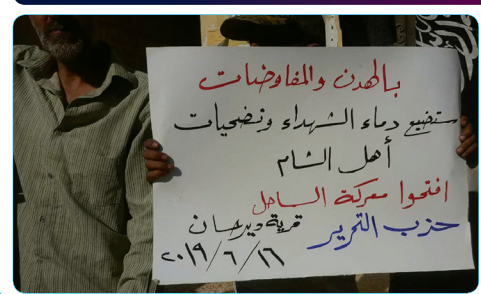 بالهدن والمفاوضات
ستضيع دماء الشهداء وتضحيات
أهل الشام
افتحوا معركة الساحل
حزب التحرير قرية دير حسان
٢٠١٩/٦/١٦